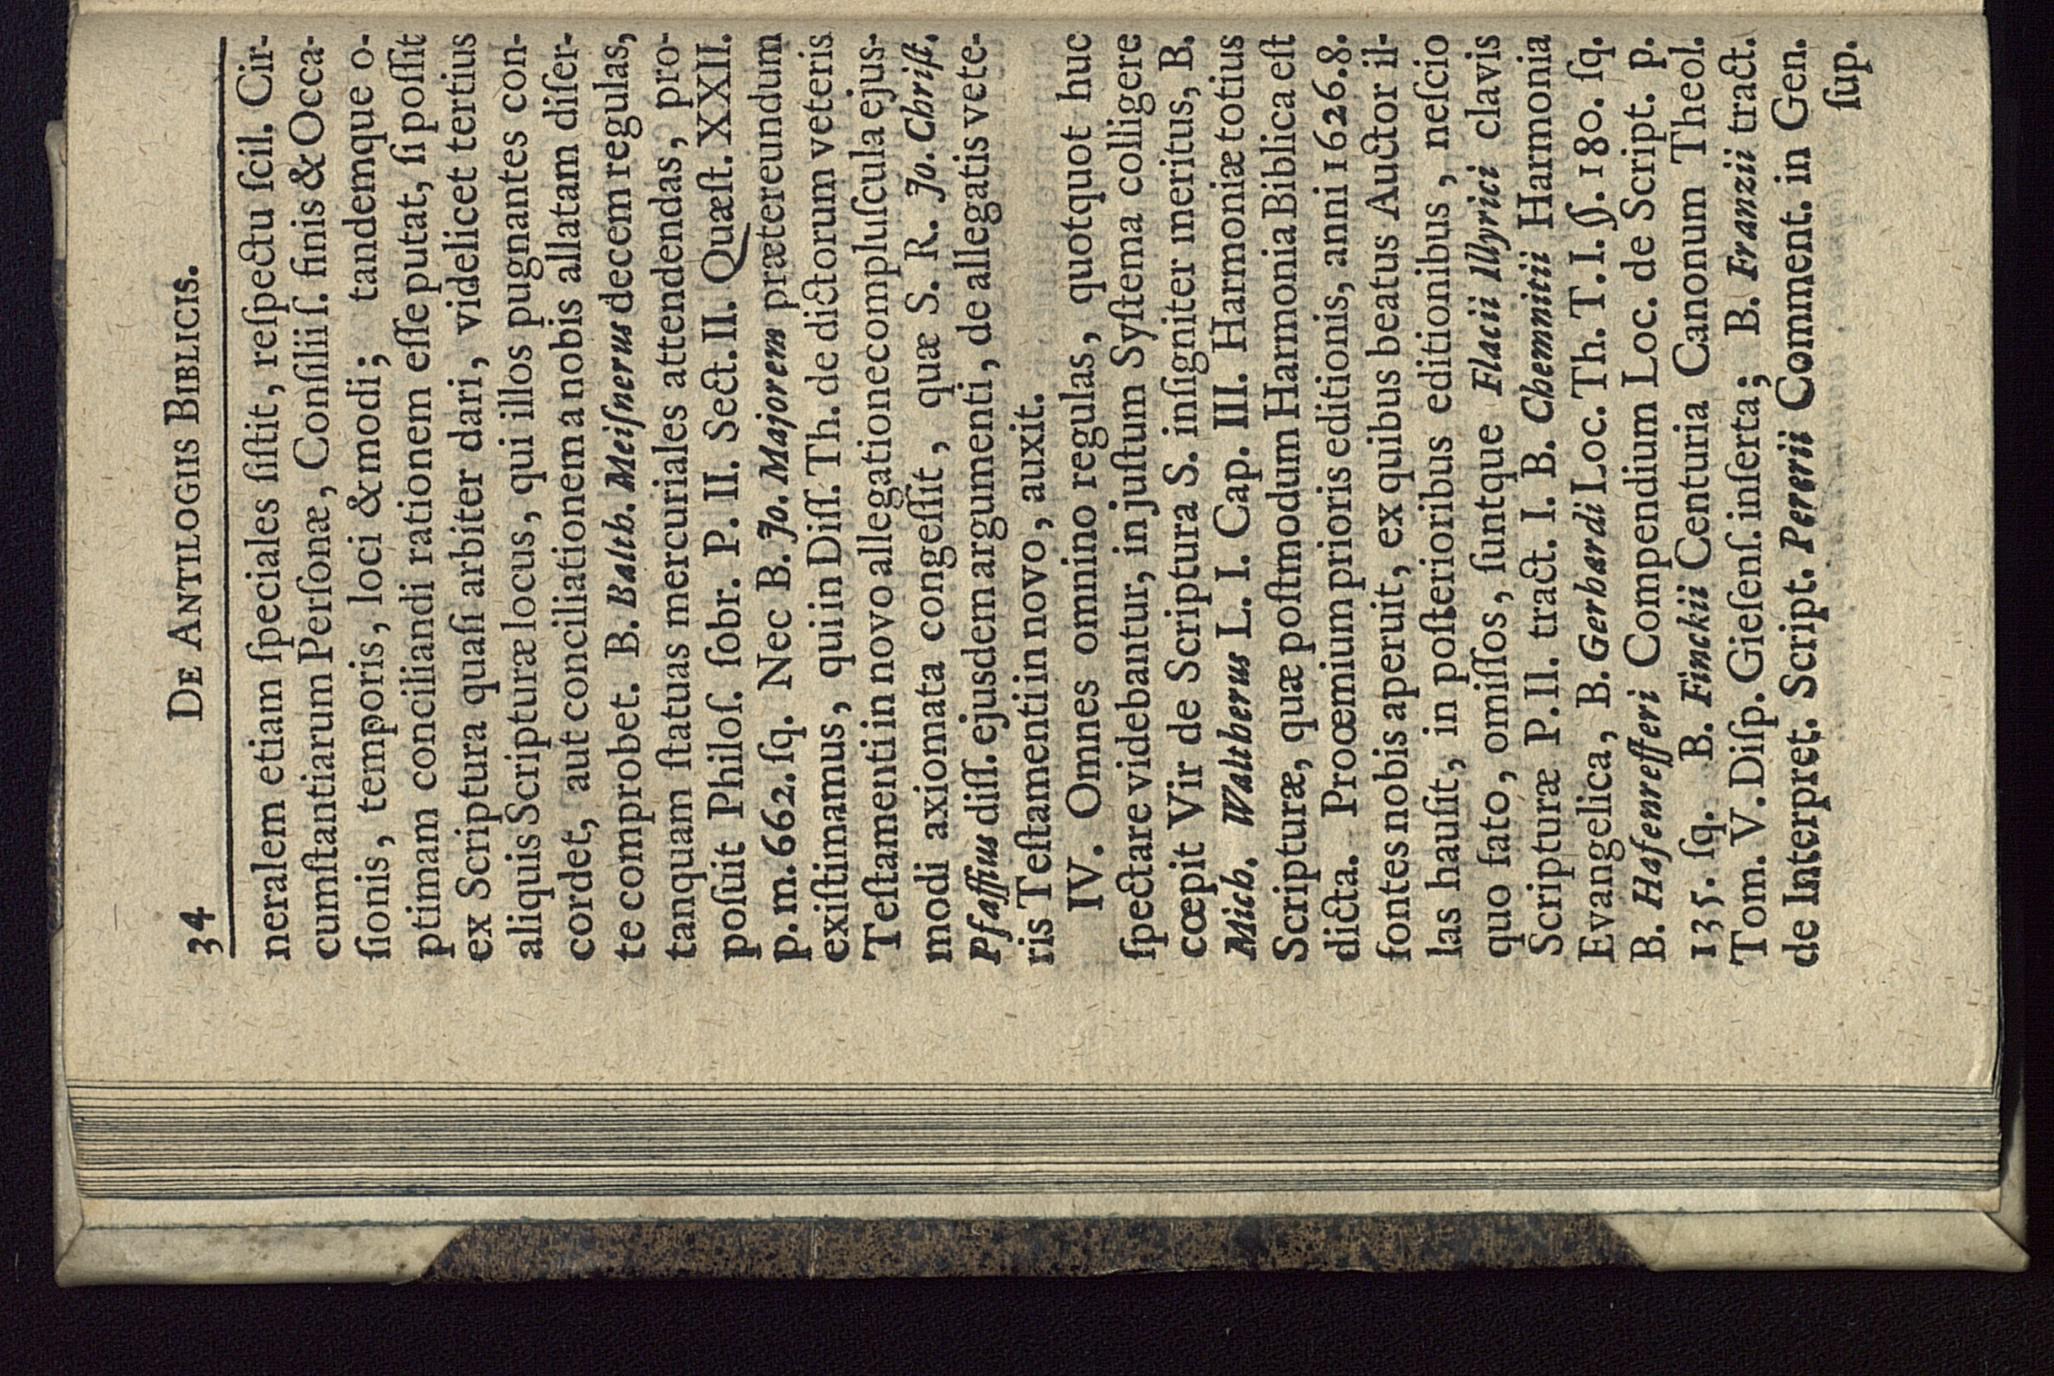 34 DE ANTILOGIIS BIBLICIS.
neralem etiam ſpeciales ſiſtit, reſpectu ſcil. Cir-
cumſtantiarum Perſonæ, Conſilii ſ. finis & Occa-
ſionis, temporis, loci & modi; tandemque o-
ptimam conciliandi rationem eſſe putat, ſi poſſit
ex Scriptura quaſi arbiter dari, videlicet tertius
aliquis Scripturæ locus, qui illos pugnantes con-
cordet, aut conciliationem a nobis allatam diſer-
te comprobet. B. Balth. Meiſnerus decem regulas,
tanquam ſtatuas mercuriales attendendas, pro-
poſuit Philoſ. ſobr. P. II. Sect. II. Quæſt. XXII.
p. m. 662. ſq. Nec B. Jo. Majorem prætereundum
exiſtimamus, qui in Diſſ. Th. de dictorum veteris
Teſtamenti in novo allegatione compluſcula ejus-
modi axiomata congeſſit, quæ S. R. Jo. Chriſt.
Pfaffius diſſ. ejusdem argumenti, de allegatis vete-
ris Teſtamenti in novo, auxit.
IV. Omnes omnino regulas, quotquot huc
ſpectare videbantur, in juſtum Syſtema colligere
cœpit Vir de Scriptura S. inſigniter meritus, B.
Mich. Waltherus L. I. Cap. III. Harmoniæ totius
Scripturæ, quæ poſtmodum Harmonia Biblica eſt
dicta. Proœmium prioris editionis, anni 1626. 8.
fontes nobis aperuit, ex quibus beatus Auctor il-
las hauſit, in poſterioribus editionibus, neſcio
quo fato, omiſſos, ſuntque Flacii Illyrici clavis
Scripturæ P. II. tract. I. B. Chemnitii Harmonia
Evangelica, B. Gerhardi Loc. Th. T. I. §. 180. ſq.
B. Hafenrefferi Compendium Loc. de Script. p.
135. ſq. B. Finckii Centuria Canonum Theol.
Tom. V. Diſp. Gieſenſ. inſerta; B. Franzii tract.
de Interpret. Script. Pererii Comment. in Gen.
ſup.